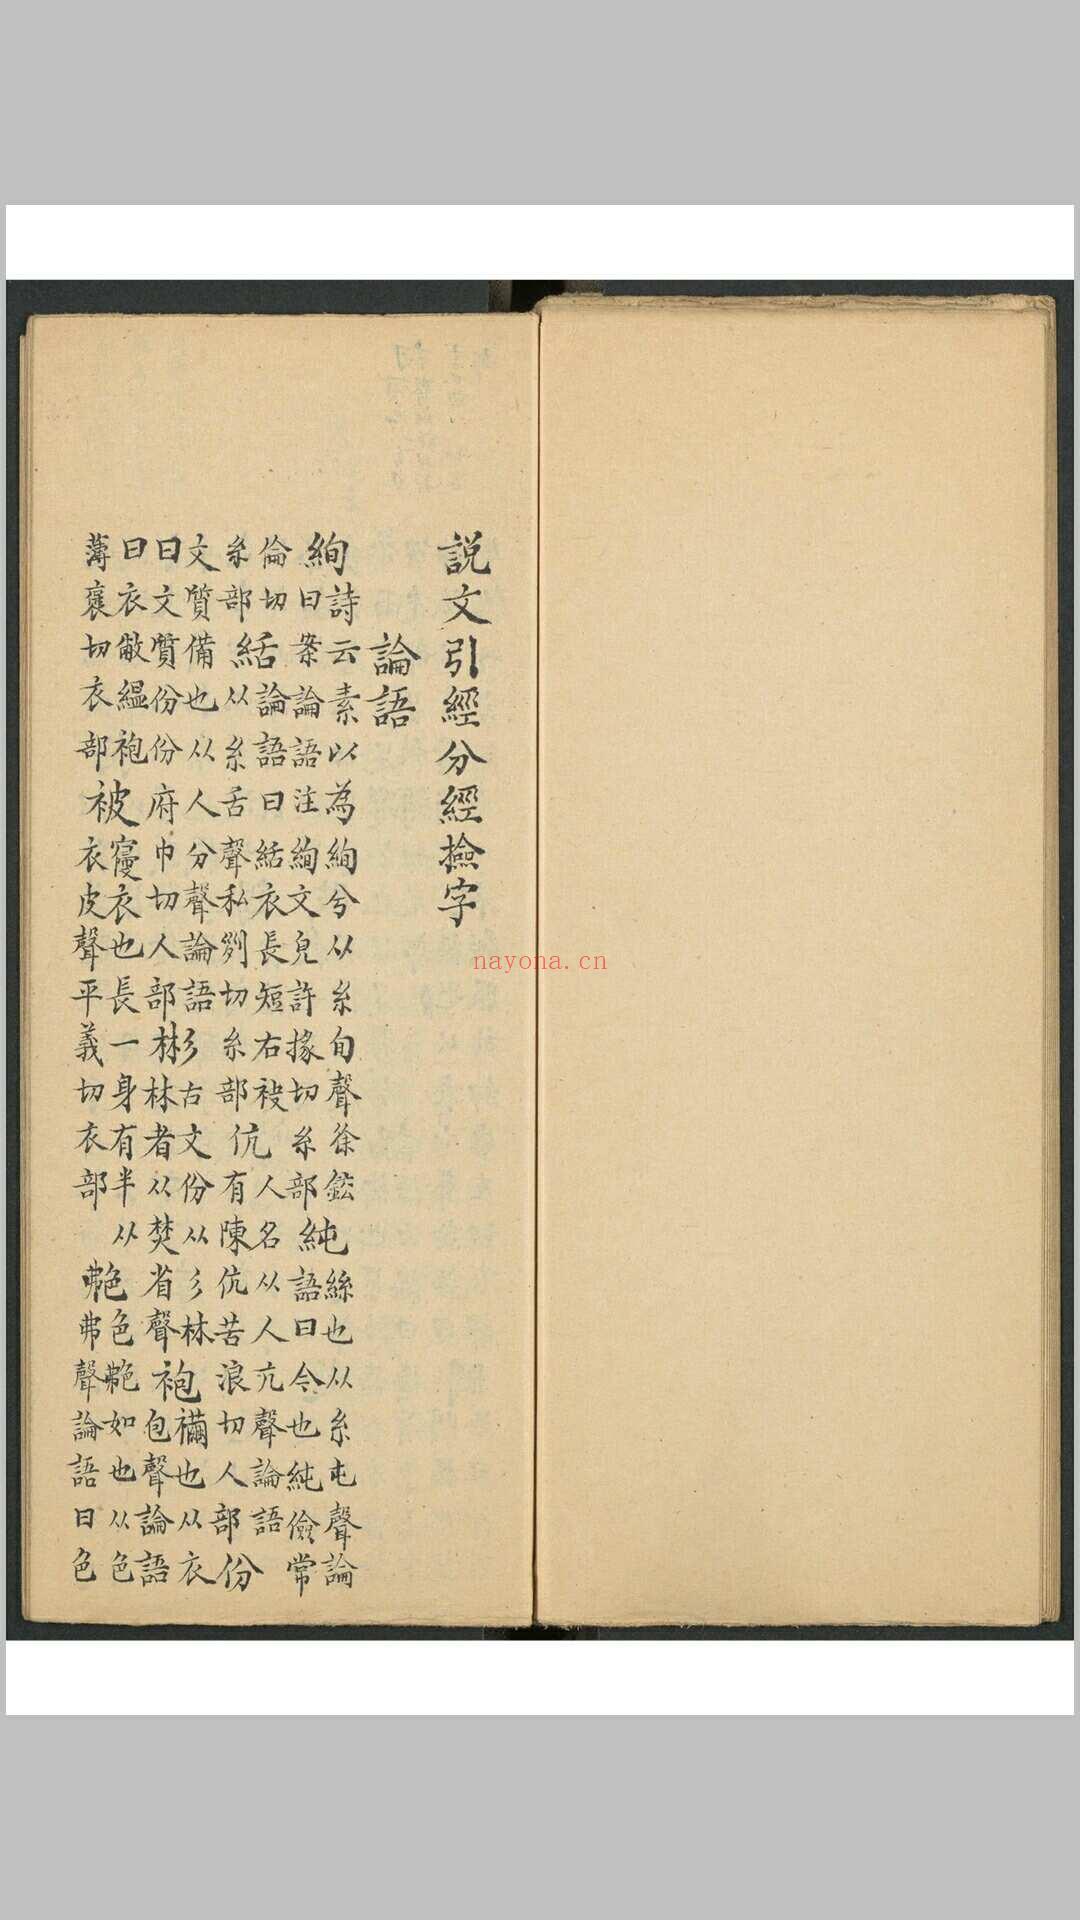 說文引經分經撿字
論語
絢
詩云素以為絢兮从糸旬聲徐鉉
曰案論語注絢文皃許掾切糸部
純
絲也从糸屯聲論
語曰今也純儉常
倫切
糸部
絬
論語曰絬衣長短右袂
从糸舌聲私列切糸部
伉
人名从人亢聲論語
有陳伉苦浪切人部
份
文質備也从人分聲論語
曰文質份份府巾切人部
彬
古文份从彡林
林者从焚省聲
袍
襺也从衣
包聲論語
曰衣敝縕袍
薄襃切衣部
被
寑衣也長一身有半从
衣皮聲平義切衣部
艴
色艴如也从色
弗聲論語曰色
nayona.cn